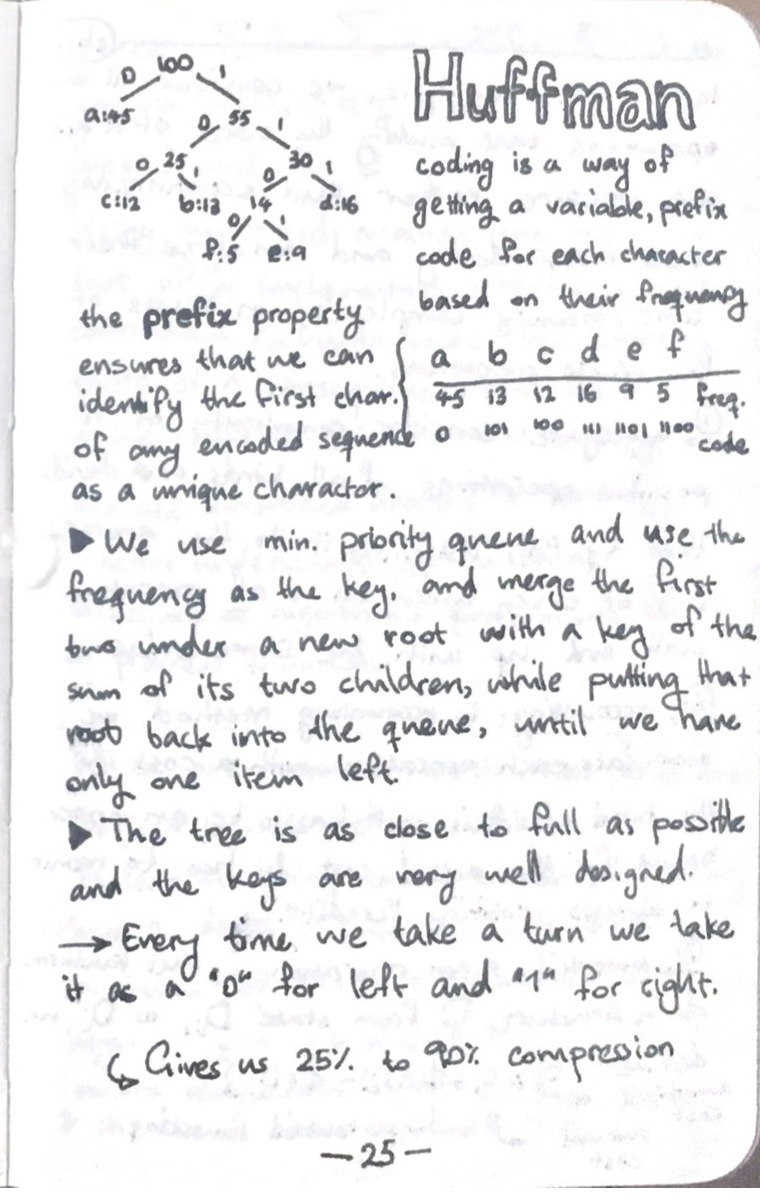 Huffman
0 100 1
a:45 0 55 1
0 25 1 0 30 1
c:12 b:13 14 d:16
0 1
f:5 e:9
coding is a way of
getting a variable, prefix
code for each character
based on their frequency
the prefix property
ensures that we can
identify the first char.
of any encoded sequence
as a unique charactor.
a b c d e f
45 13 12 16 9 5 freq.
0 101 100 111 1101 1100 code
▶ We use min. priority queue and use the
frequency as the key. and merge the first
two under a new root with a key of the
sum of its two children, while putting that
root back into the queue, until we have
only one item left.
▶ The tree is as close to full as possible
and the keys are very well designed.
→ Every time we take a turn we take
it as a "0" for left and "1" for right.
↳ Gives us 25% to 90% compression
— 25 —